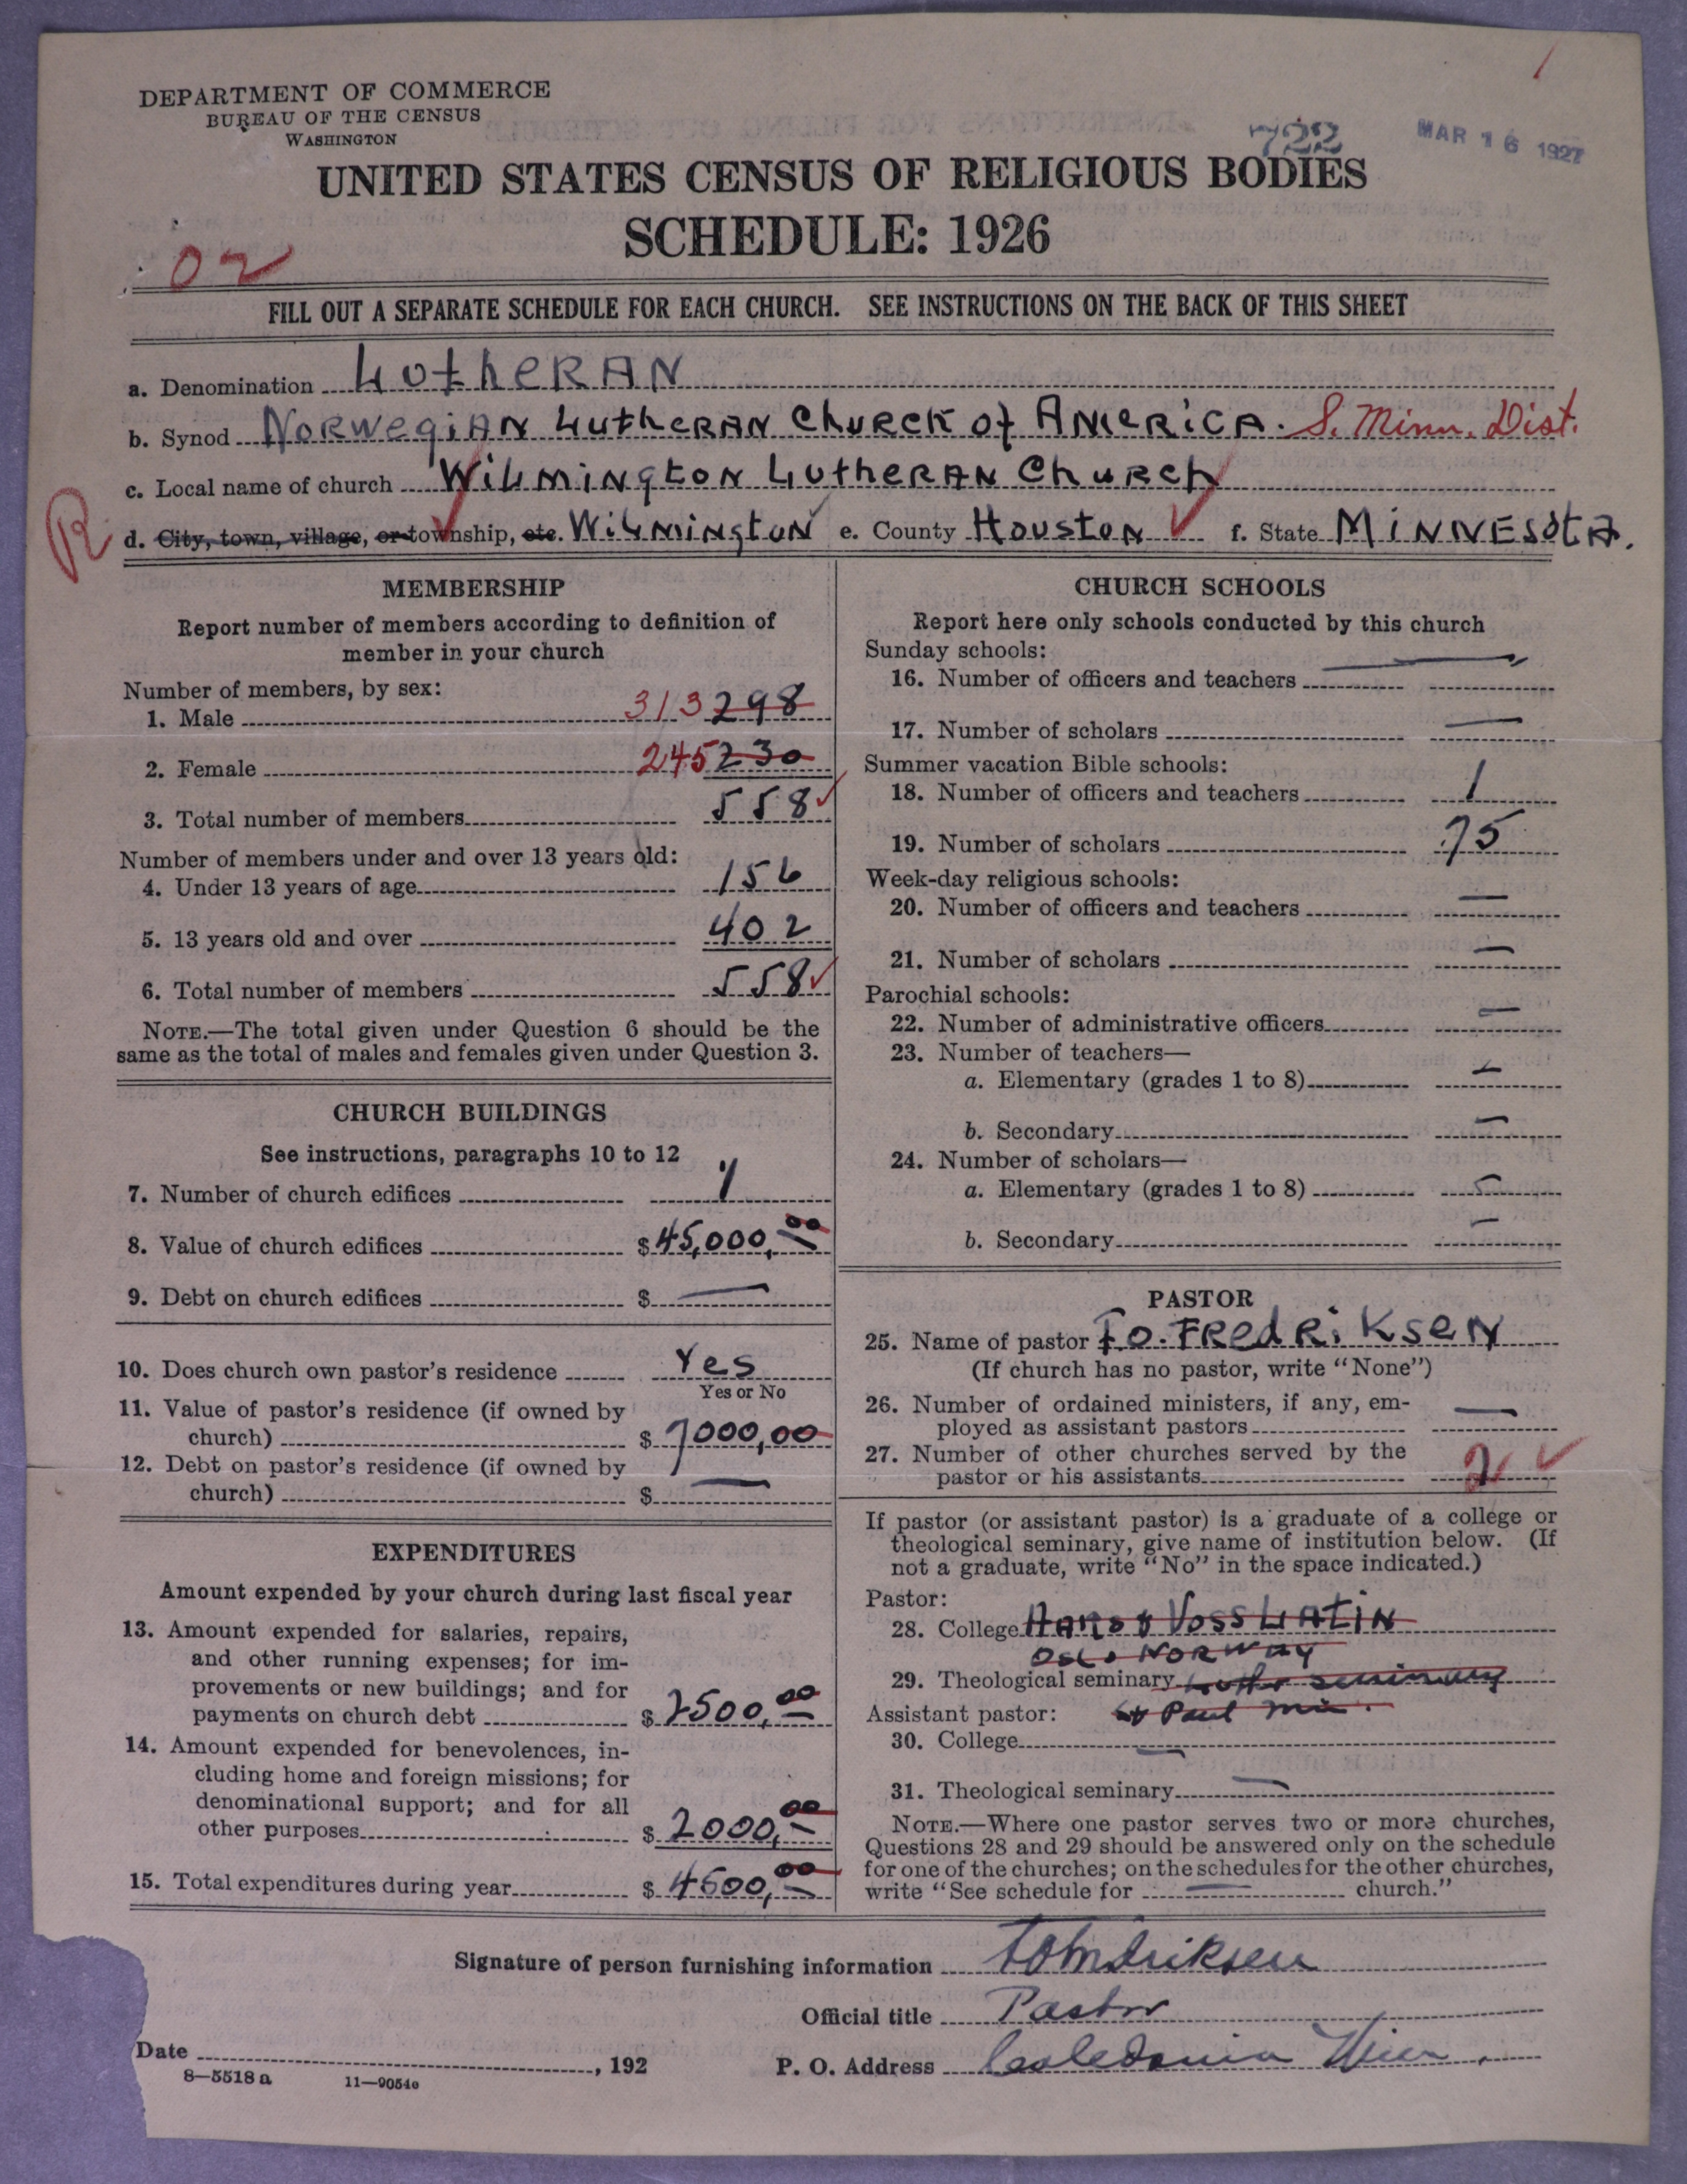 DEPARTMENT OF COMMERCE
BUREAU OF THE CENSUS
WASHINGTON
722
MAR 16 1927
UNITED STATES CENSUS OF RELIGIOUS BODIES
SCHEDULE: 1926
02
FILL OUT A SEPARATE SCHEDULE FOR EACH CHURCH. SEE INSTRUCTIONS ON THE BACK OF THIS SHEET
a. Denomination LutheRAN
b. Synod NORWegiAN LutheRAN ChuRch of AMeRiCA. S. Minn. Dist.
c. Local name of church WiLMington LutheRAN ChuRch
R
d. City, town, village, or township, etc. WiLMington e. County Houston f. State MiNNESotA.
MEMBERSHIP
Report number of members according to definition of
member in your church
Number of members, by sex:
1. Male 313 298
2. Female 245 230
3. Total number of members 558
Number of members under and over 13 years old:
4. Under 13 years of age 156
5. 13 years old and over 402
6. Total number of members 558
NOTE.—The total given under Question 6 should be the
same as the total of males and females given under Question 3.
CHURCH BUILDINGS
See instructions, paragraphs 10 to 12
7. Number of church edifices 1
8. Value of church edifices $45,000,00
9. Debt on church edifices $ —
10. Does church own pastor's residence Yes
Yes or No
11. Value of pastor's residence (if owned by
church) $ 7000,00
12. Debt on pastor's residence (if owned by
church) $ —
EXPENDITURES
Amount expended by your church during last fiscal year
13. Amount expended for salaries, repairs,
and other running expenses; for im-
provements or new buildings; and for
payments on church debt $ 2500,00
14. Amount expended for benevolences, in-
cluding home and foreign missions; for
denominational support; and for all
other purposes $ 2000,00
15. Total expenditures during year $ 4500,00
CHURCH SCHOOLS
Report here only schools conducted by this church
Sunday schools:
16. Number of officers and teachers —
17. Number of scholars —
Summer vacation Bible schools:
18. Number of officers and teachers 1
19. Number of scholars 75
Week-day religious schools:
20. Number of officers and teachers —
21. Number of scholars —
Parochial schools:
22. Number of administrative officers —
23. Number of teachers—
a. Elementary (grades 1 to 8) —
b. Secondary —
24. Number of scholars—
a. Elementary (grades 1 to 8) —
b. Secondary —
PASTOR
25. Name of pastor T.O. FRedRiKseN
(If church has no pastor, write "None")
26. Number of ordained ministers, if any, em-
ployed as assistant pastors —
27. Number of other churches served by the
pastor or his assistants 2
If pastor (or assistant pastor) is a graduate of a college or
theological seminary, give name of institution below. (If
not a graduate, write "No" in the space indicated.)
Pastor:
28. College & Voss LAtiN
OSLO NORWAY
29. Theological seminary Luther seminary
Assistant pastor: St Paul Min.
30. College —
31. Theological seminary —
NOTE.—Where one pastor serves two or more churches,
Questions 28 and 29 should be answered only on the schedule
for one of the churches; on the schedules for the other churches,
write "See schedule for — church."
Signature of person furnishing information
Official title Pastor
Date , 192
P. O. Address Caledonia Minn.
8—5518 a 11—9054c